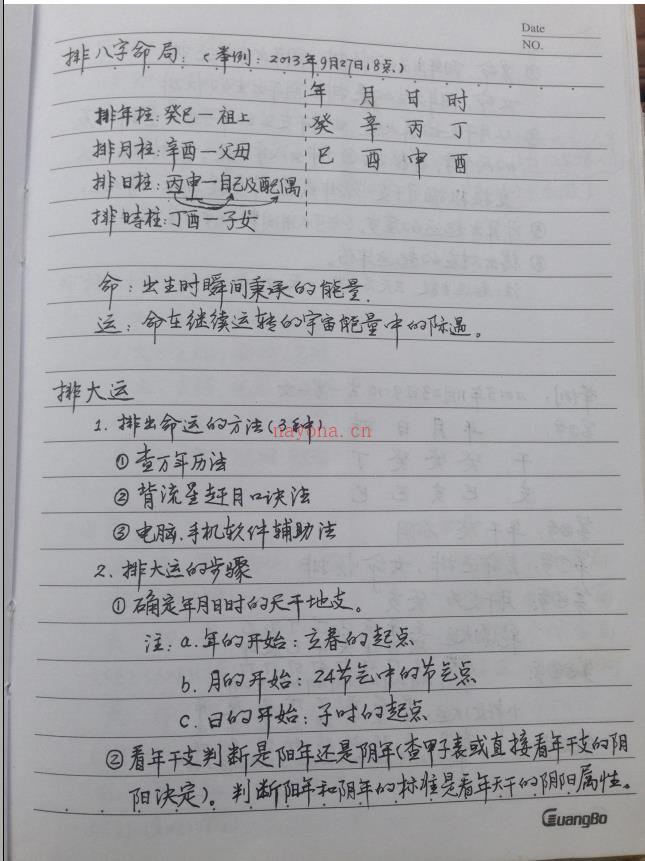 Date
NO.
排八字命局：（举例：2013年9月27日18点）
年 月 日 时
排年柱：癸巳—祖上 癸 辛 丙 丁
排月柱：辛酉—父母 巳 酉 申 酉
排日柱：丙申—自己及配偶
排时柱：丁酉—子女
命：出生时瞬间秉承的能量.
运：命在继续运转的宇宙能量中的际遇。
排大运
1. 排出命运的方法（3种）
nayona.cn
①查万年历法
②背流星赶月口诀法
③电脑.手机软件辅助法
2. 排大运的步骤
①确定年月日时的天干地支。
注：a.年的开始：立春的起点
b. 月的开始：24节气中的节气点
c. 日的开始：子时的起点
②看年干支判断是阳年还是阴年（查甲子表或直接看年干支的阴
阳决定）。判断阳年和阴年的标准是看年天干的阴阳属性。
GuangBo